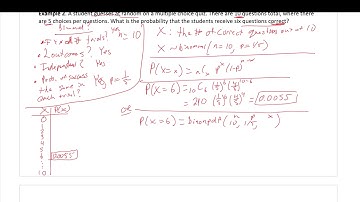 Example 2. A student guesses at random on a multiple choice quiz. There are 10 questions total, where there
are 5 choices per questions. What is the probability that the students receive six questions correct?
Binomial?
• Fixed # of trials? Yes n = 10
• 2 outcomes? Yes
• Independent? Yes
• Prob. of success the same each trial? Yes, p = 1/5
X: the # of correct questions out of 10
X ~ binomial (n = 10, p = 1/5)
P(X=x) = nCx p^x (1-p)^n-x
P(X=6) = 10C6 (1/5)^6 (4/5)^10-6
= 210 (1/5)^6 (4/5)^4 = 0.0055
or
P(X=6) = binompdf(10, 1/5,
X P(X)
0
1
2
3
4
5
6 0.0055
10